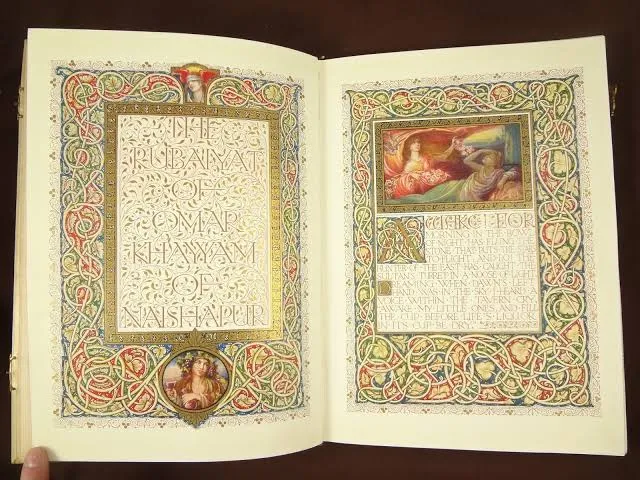 THE
RUBAIYAT
OF
OMAR
KHAYYAM
OF
NAISHAPUR
AWAKE! FOR
MORNING IN THE BOWL
OF NIGHT HAS FLUNG THE
STONE THAT PUTS THE
STARS TO FLIGHT: AND LO! THE
HUNTER OF THE EAST HAS CAUGHT THE
SULTAN'S TURRET IN A NOOSE OF LIGHT.
DREAMING WHEN DAWN'S LEFT
HAND WAS IN THE SKY I HEARD A
VOICE WITHIN THE TAVERN CRY,
AWAKE, MY LITTLE ONES, AND FILL
THE CUP BEFORE LIFE'S LIQUOR
IN ITS CUP BE DRY.